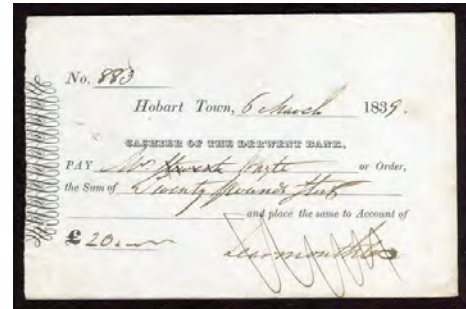 No. 883
Hobart Town, 6 March 1839.
CASHIER OF THE DERWENT BANK,
PAY Mr or Order,
the Sum of Twenty Pounds Stg
and place the same to Account of
£ 20